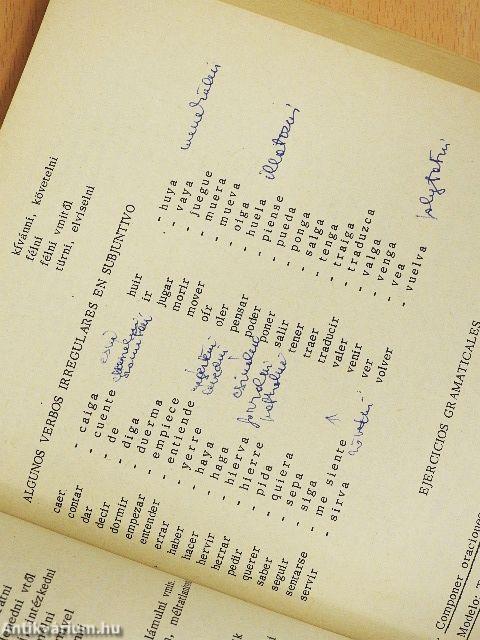 kívánni, követelni
félni
félni vmitől
tűrni, elviselni
ALGUNOS VERBOS IRREGULARES EN SUBJUNTIVO
caer - caiga esni huir - huya menekülni
contar - cuente ir - vaya
dar - de jugar - juegue
decir - diga morir - muera
dormir - duerma mover - mueva
empezar - empiece oír - oiga
entender - entiende oler - huela illatozni
errar - yerre tévedni pensar - piense
haber - haya poder - pueda
hacer - haga poner - ponga
hervir - hierva salir - salga
herrar - hierre tener - tenga
pedir - pida traer - traiga
querer - quiera traducir - traduzca
saber - sepa valer - valga
seguir - siga venir - venga
sentarse - me siente ver - vea
servir - sirva volver - vuelva folytatni
EJERCICIOS GRAMATICALES
Componer oraciones
Modelo:
Antikvarium.hu